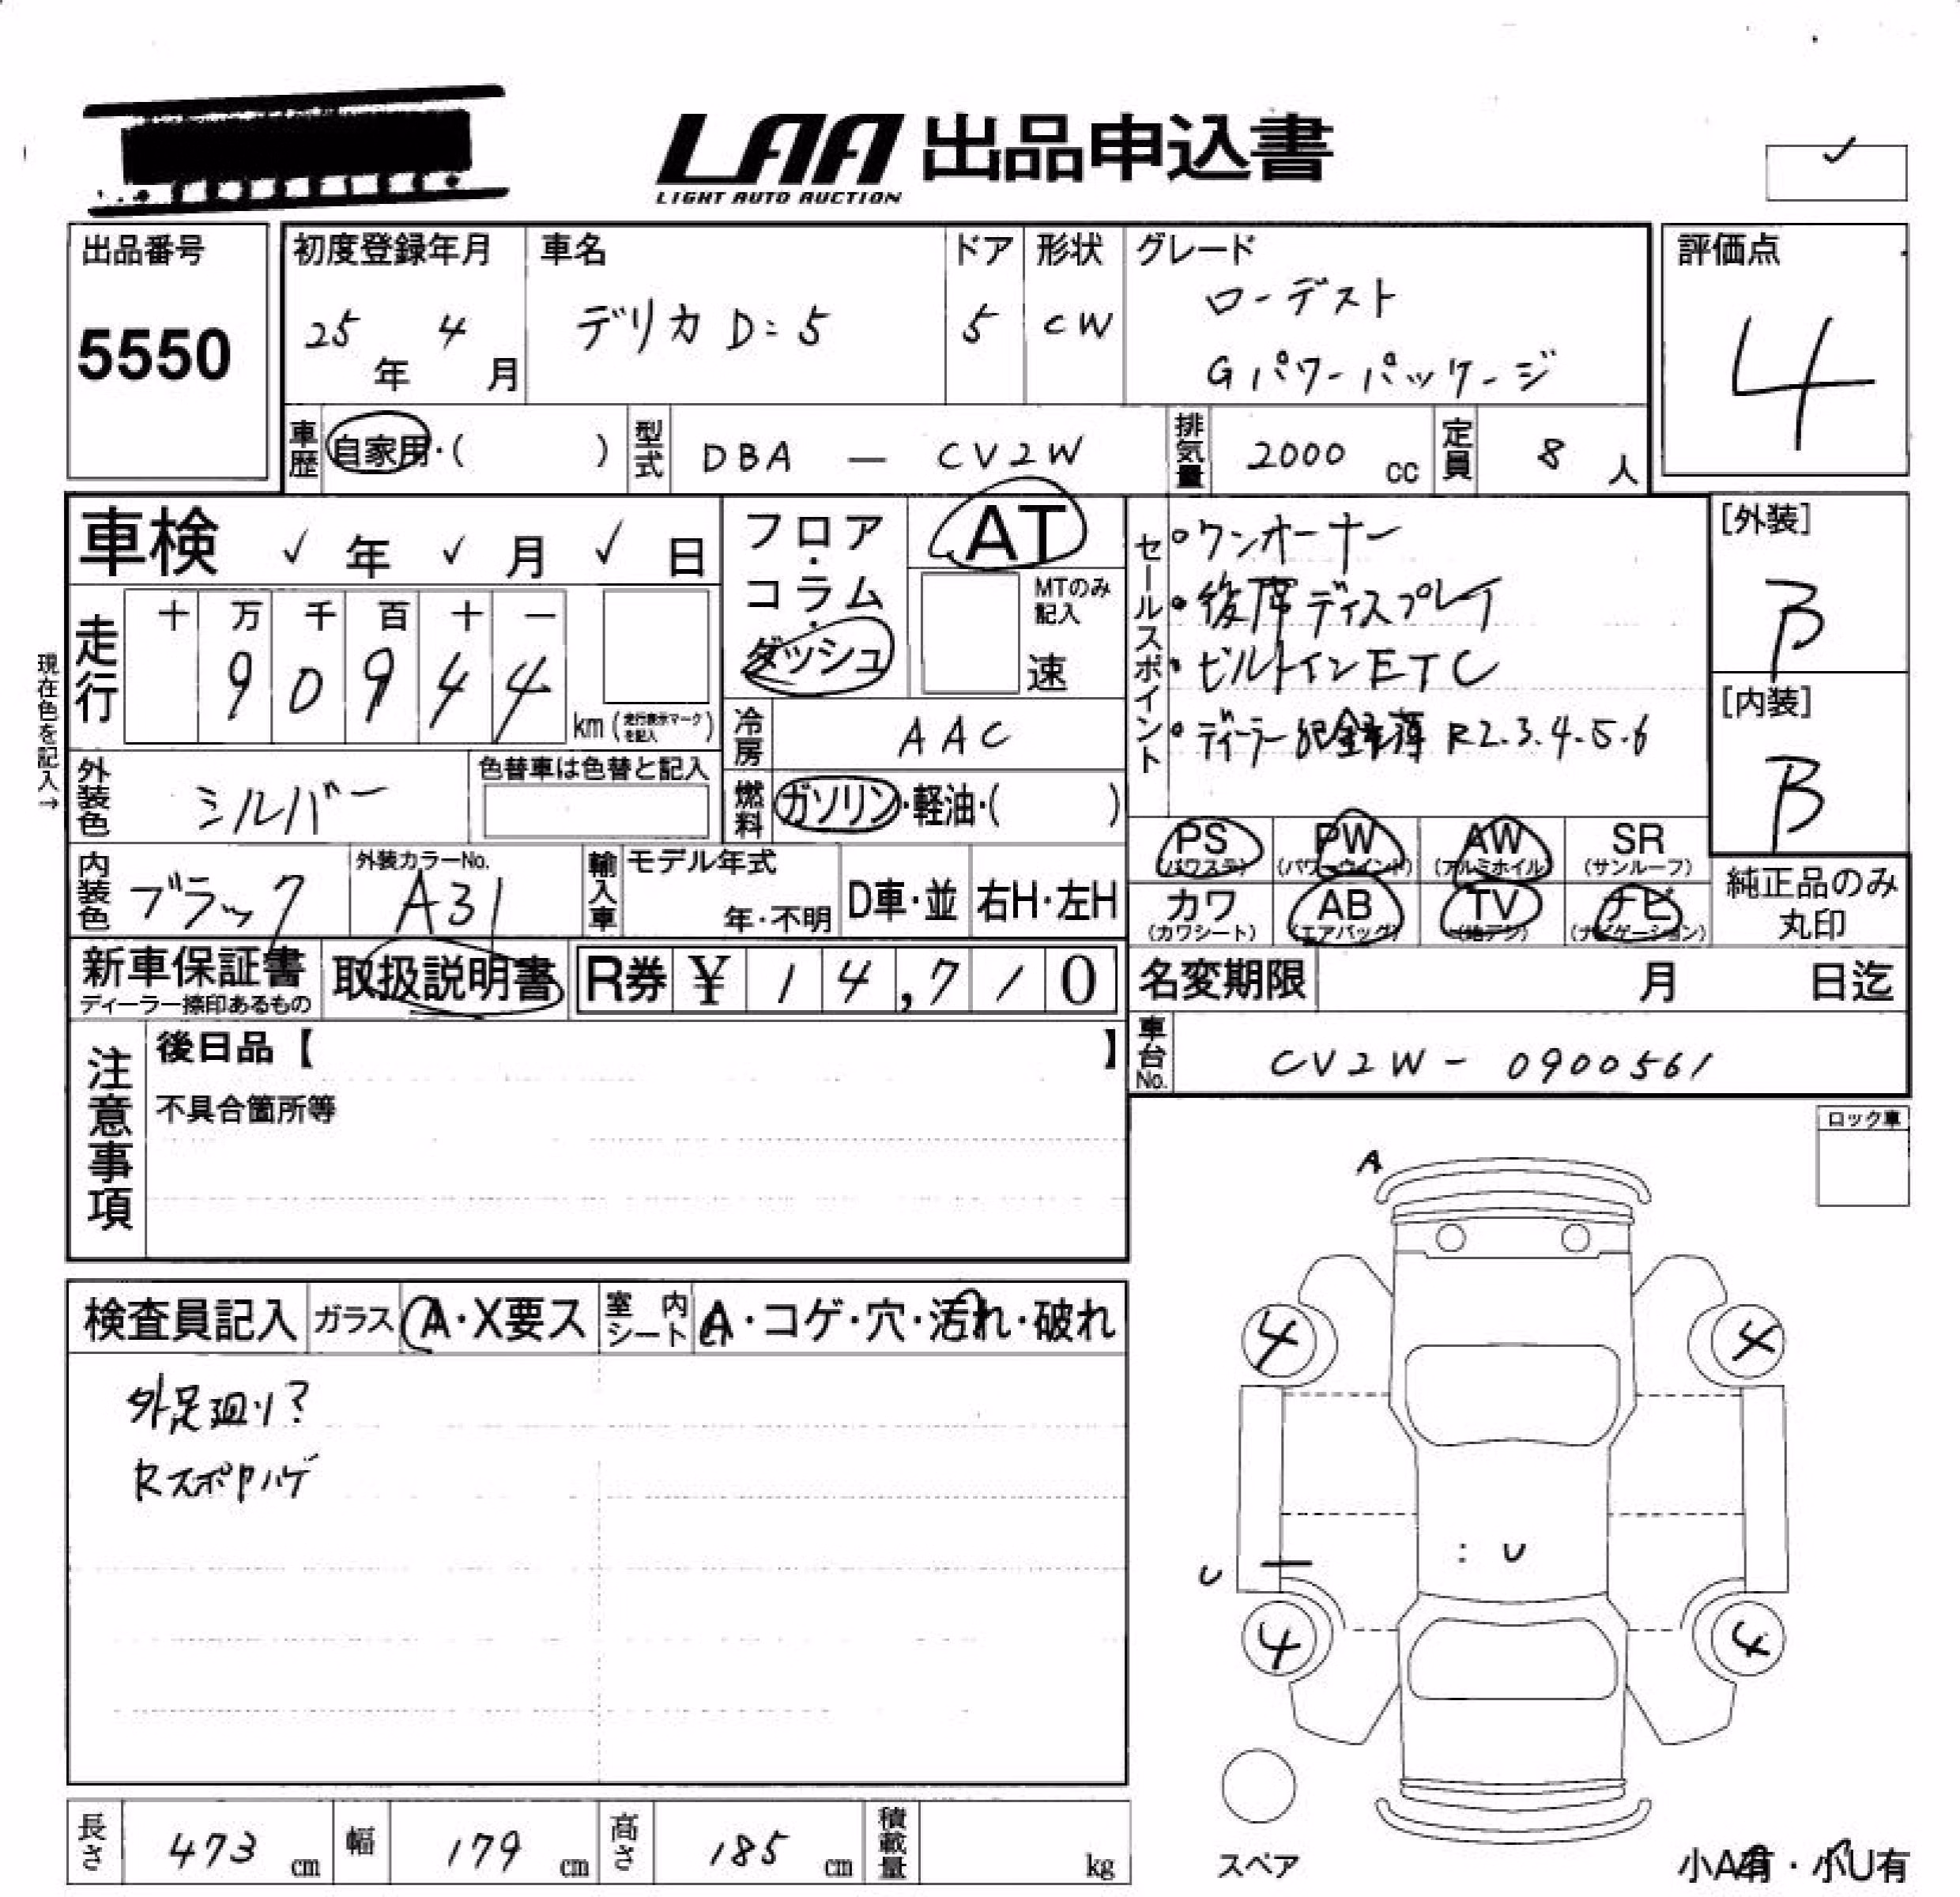 LAA 出品申込書
LIGHT AUTO AUCTION
出品番号
5550
初度登録年月
25年 4月
車名
デリカ D:5
ドア
5
形状
CW
グレード
ローデスト
Gパワーパッケージ
評価点
4
車歴
自家用・( )
型式
DBA — CV2W
排気量
2000 cc
定員
8 人
車検 ✓年 ✓月 ✓日
現在色を記入→
走行
十 万 千 百 十 一
9 0 9 4 4
km (走行表示マークを記入)
フロア・コラム・ダッシュ
AT
MTのみ記入
速
冷房
AAC
燃料
ガソリン・軽油・( )
外装色
シルバー
色替車は色替と記入
内装色
ブラック
外装カラーNo.
A31
輸入車
モデル年式
年・不明
D車・並
右H・左H
セールスポイント
・ワンオーナー
・後席ディスプレイ
・ビルトインETC
・ディーラー記録簿 R2.3.4.5.6
[外装]
B
[内装]
B
PS
(パワステ)
PW
(パワーウインド)
AW
(アルミホイル)
SR
(サンルーフ)
カワ
(カワシート)
AB
(エアバック)
TV
(地デジ)
ナビ
(ナビゲーション)
純正品のみ
丸印
新車保証書
ディーラー捺印あるもの
取扱説明書
R券 ¥ 14,710
名変期限 月 日迄
車台No.
CV2W - 0900561
注意事項
後日品【 】
不具合箇所等
ロック車
検査員記入
ガラス
A・X要ス
室内シート
A・コゲ・穴・汚れ・破れ
外足廻り?
RスポDハゲ
A
4
4
U
U
4
4
スペア
小A有・小U有
長さ
473 cm
幅
179 cm
高さ
185 cm
積載量
kg